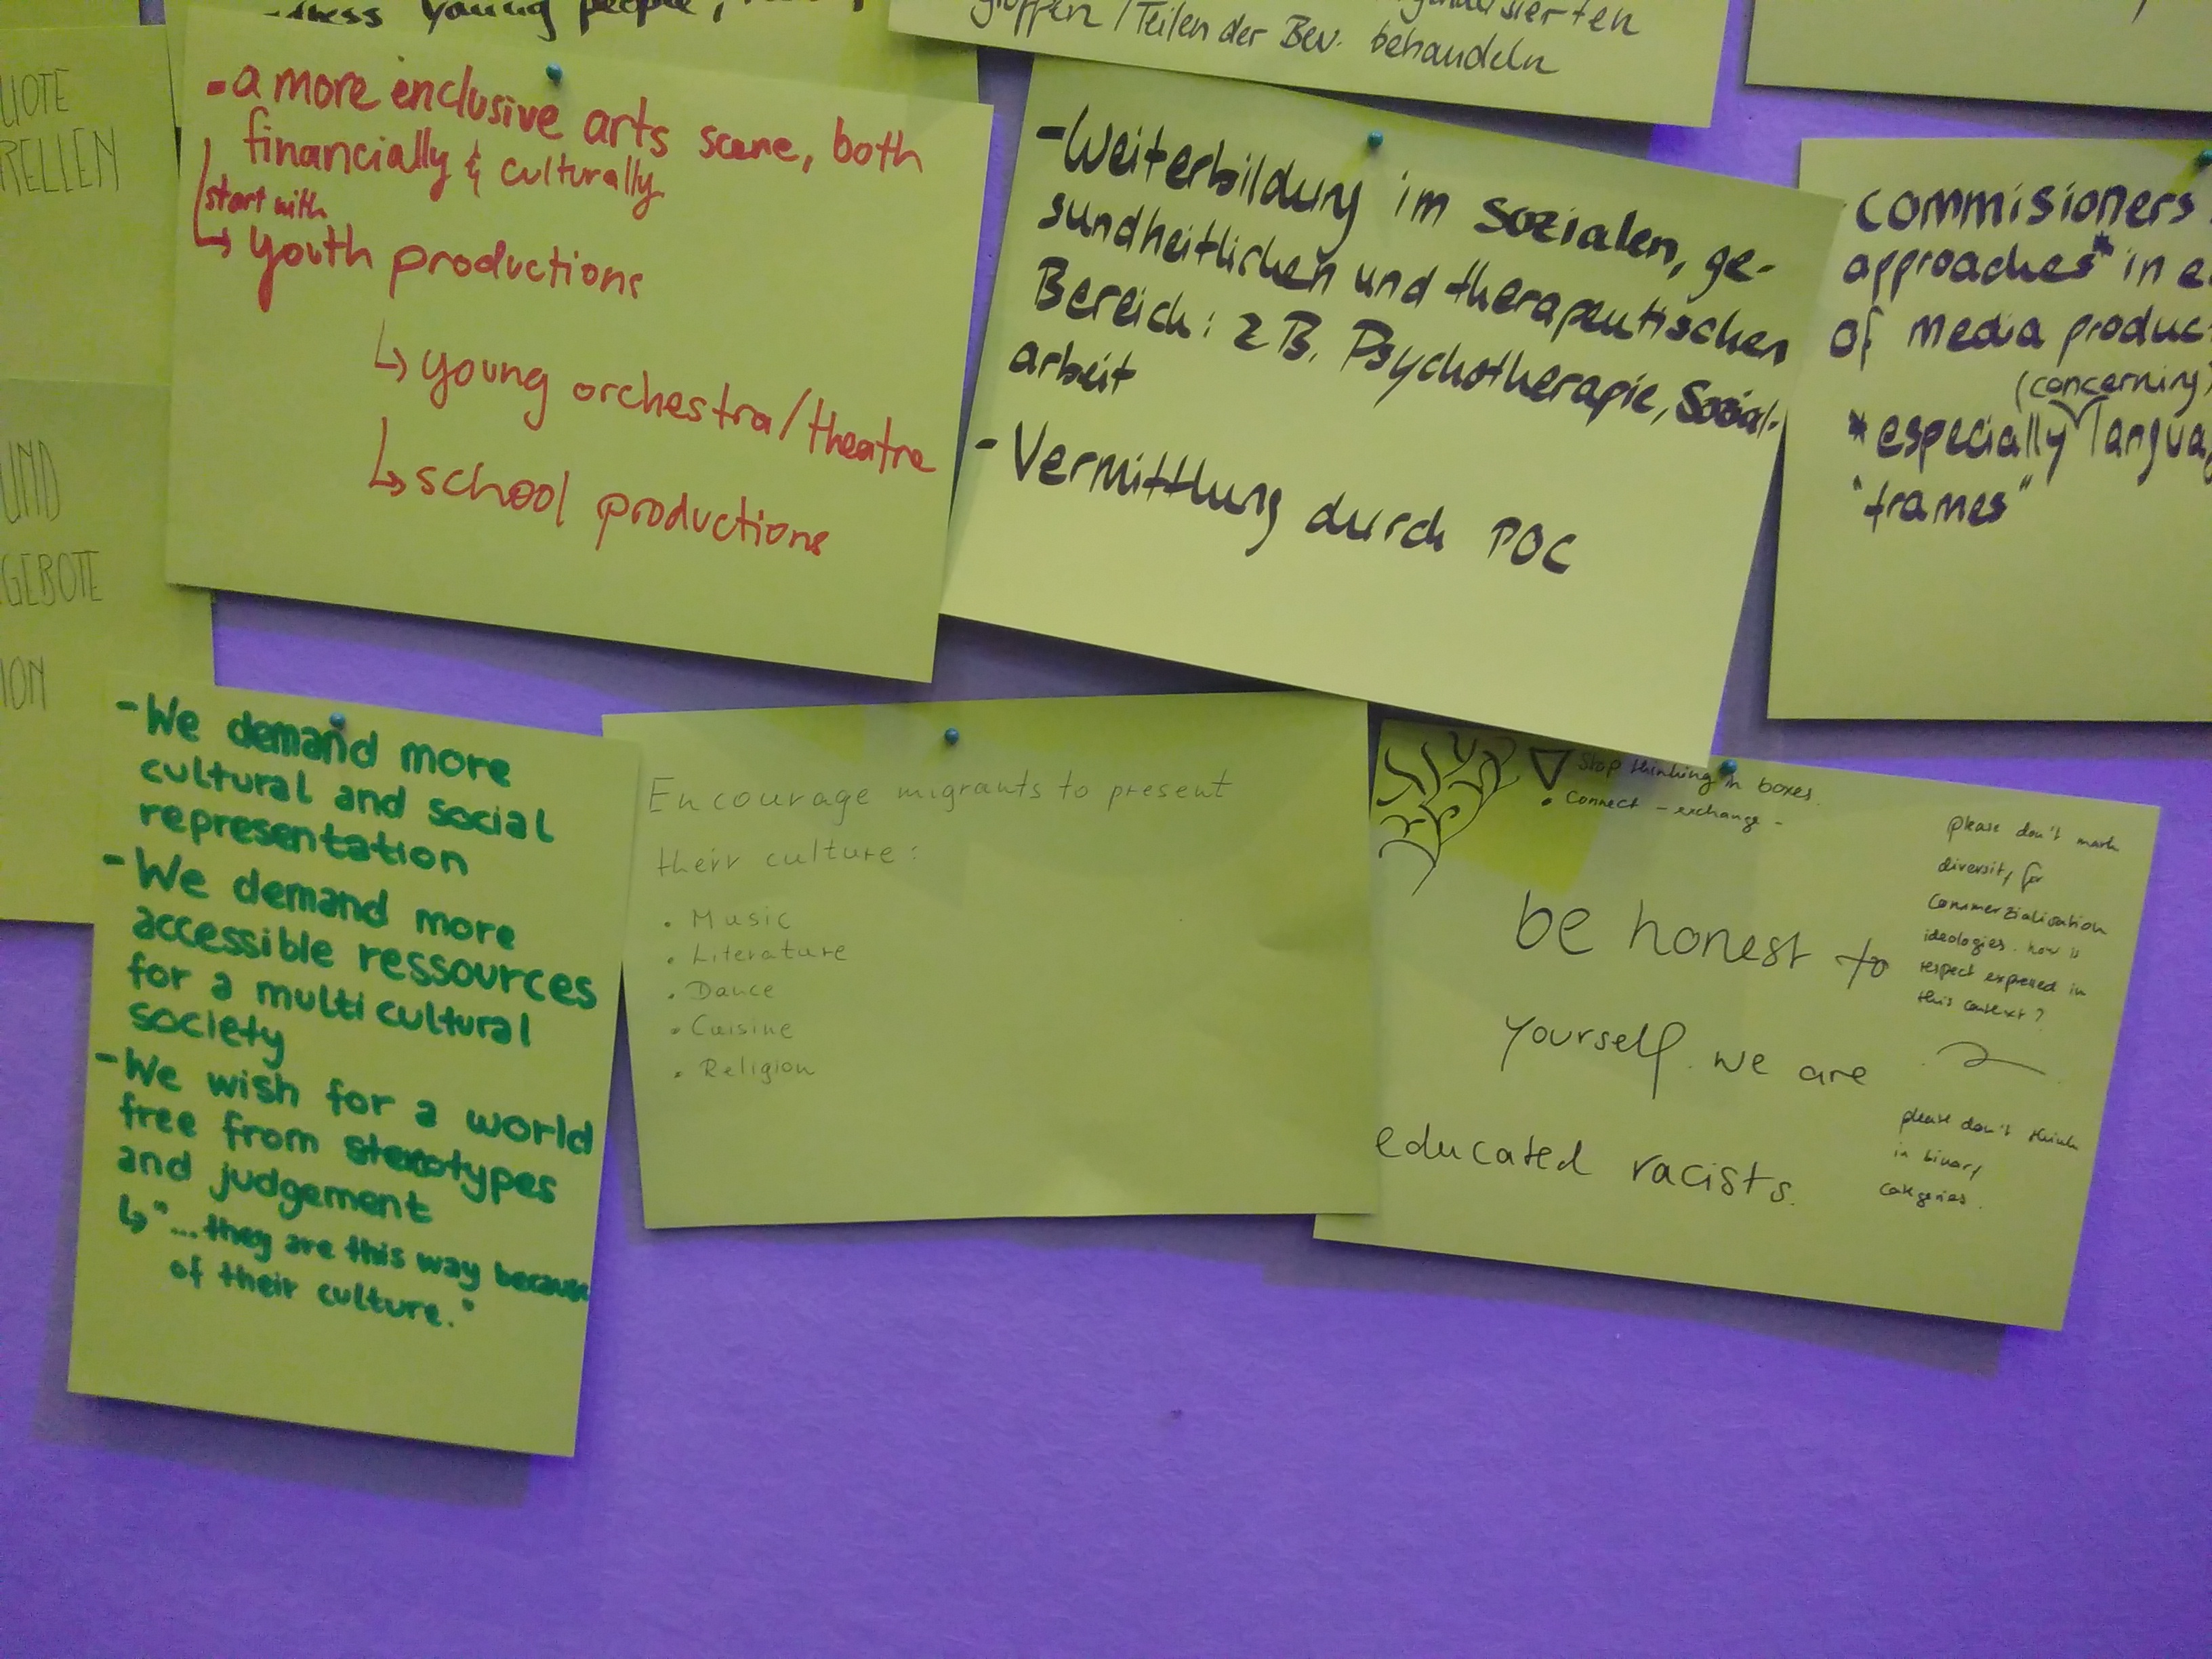 young people,
gruppen / Teilen der Bev. behandeln
RELLEN
UND
GEBOTE
ION
- a more inclusive arts scene, both
financially & culturally
start with
↳ youth productions
↳ young orchestra/theatre
↳ school productions
- Weiterbildung im sozialen, ge-
sundheitlichen und therapeutischen
Bereich: z B. Psychotherapie, Sozial-
arbeit
- Vermittlung durch POC
commisioners
approaches* in
of media
(concerning)
* especially
"frames"
- We demand more
cultural and social
representation
- We demand more
accessible ressources
for a multicultural
society
- We wish for a world
free from stereotypes
and judgement
↳ "...they are this way because
of their culture."
Encourage migrants to present
their culture:
• Music
• Literature
• Dance
• Cuisine
• Religion
Stop thinking in boxes.
• Connect - exchange -
be honest to
yourself. we are
educated racists.
please don't mark
diversity for
commerzialisation
ideologies. how is
respect expressed in
this context?
please don't think
in binary
categories.